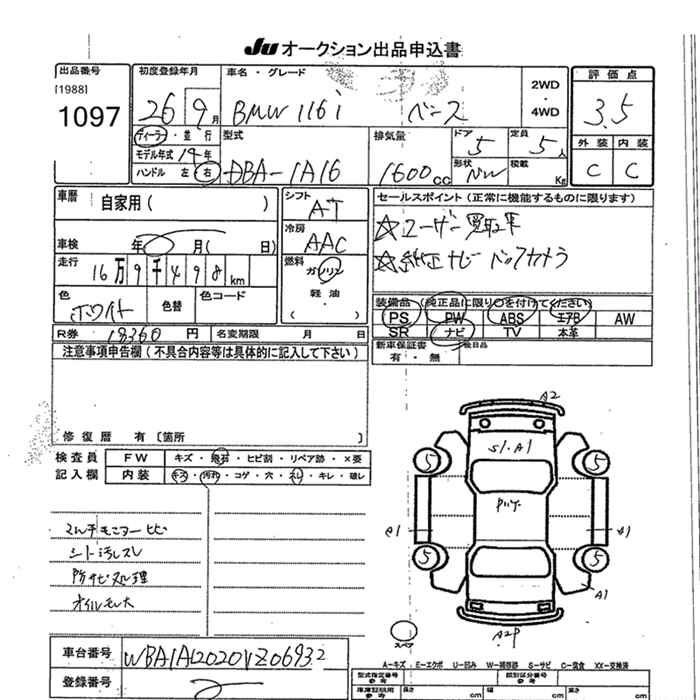 JU オークション出品申込書
出品番号 初度登録年月 車名・グレード 評価点
[1988]
1097
26 9月 BMW 116i ベース 2WD・4WD 3.5
ディーラー・並行 型式 排気量 ドア 5 定員 5人 外装 内装
モデル年式 14年
ハンドル 左 右 DBA-1A16 1600cc 形状 積載 Kg C C
車歴 自家用( ) シフト AT セールスポイント(正常に機能するものに限ります)
☆ユーザー買取車
冷房 AAC
車検 年 月( 日)
☆純正ナビ バックカメラ
走行 16万9千498km 燃料 ガソリン 軽油・ ( )
色 ホワイト 色替 色コード
装備品(純正品に限り○を付けてください)
PS PW ABS エアB AW
SR ナビ TV 本革
R券 18360円 名変期限 月 日
新車保証書 有・無 後日品
注意事項申告欄(不具合内容等は具体的に記入して下さい)
修復歴 有〔箇所 〕
検査員 FW キズ・飛石・ヒビ割・リペア跡・×要
記入欄 内装 キズ・汚れ・コゲ・穴・スレ・キレ・破レ
マルチモニターヒビ
シート汚レスレ
防サビ処理
オイルモレ大
A2
S1.A1
5 5
A1
5 5
A1
A2P
スペア
車台番号 WBA1A12020VZ06932
登録番号
A-キズ E-エクボ U-凹み W-補修跡 S-サビ C-腐食 XX-交換済
型式指定番号 参考 類別区分番号 参考
車庫証明用 参考 長さ cm 幅 cm 高さ cm